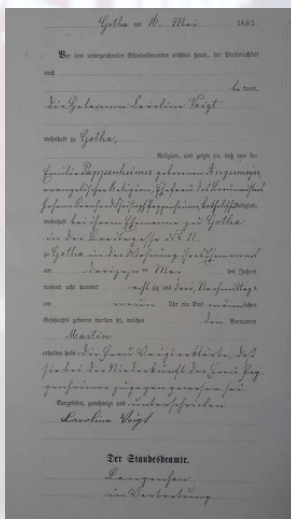 Gotha am 16. Mai 1883.
Vor dem unterzeichneten Standesbeamten erschien heute, der Persönlichkeit
nach
bekannt,
die Hebamme Caroline Voigt
wohnhaft zu Gotha,
Religion, und zeigte an, daß von der
Emilie Pappenheimer geborenen Angermeyer,
evangelischer Religion, Ehefrau des
Johann Pappenheimer, katholischer Religion,
wohnhaft bei ihrem Ehemann zu Gotha
in der Breitegasse No. 11.
zu Gotha in der Wohnung ihres Ehemannes
am dreizehnten Mai des Jahres
tausend acht hundert achtzig und drei, Nachmittags
um neun Uhr ein Kind männlichen
Geschlechts geboren worden sei, welches den Vornamen
Martin
erhalten habe. Die Frau Voigt erklärte, daß
sie bei der Niederkunft der Frau Pap-
penheimer zugegen gewesen sei
Vorgelesen, genehmigt und unterschrieben
Caroline Voigt
Der Standesbeamte.
in Vertretung